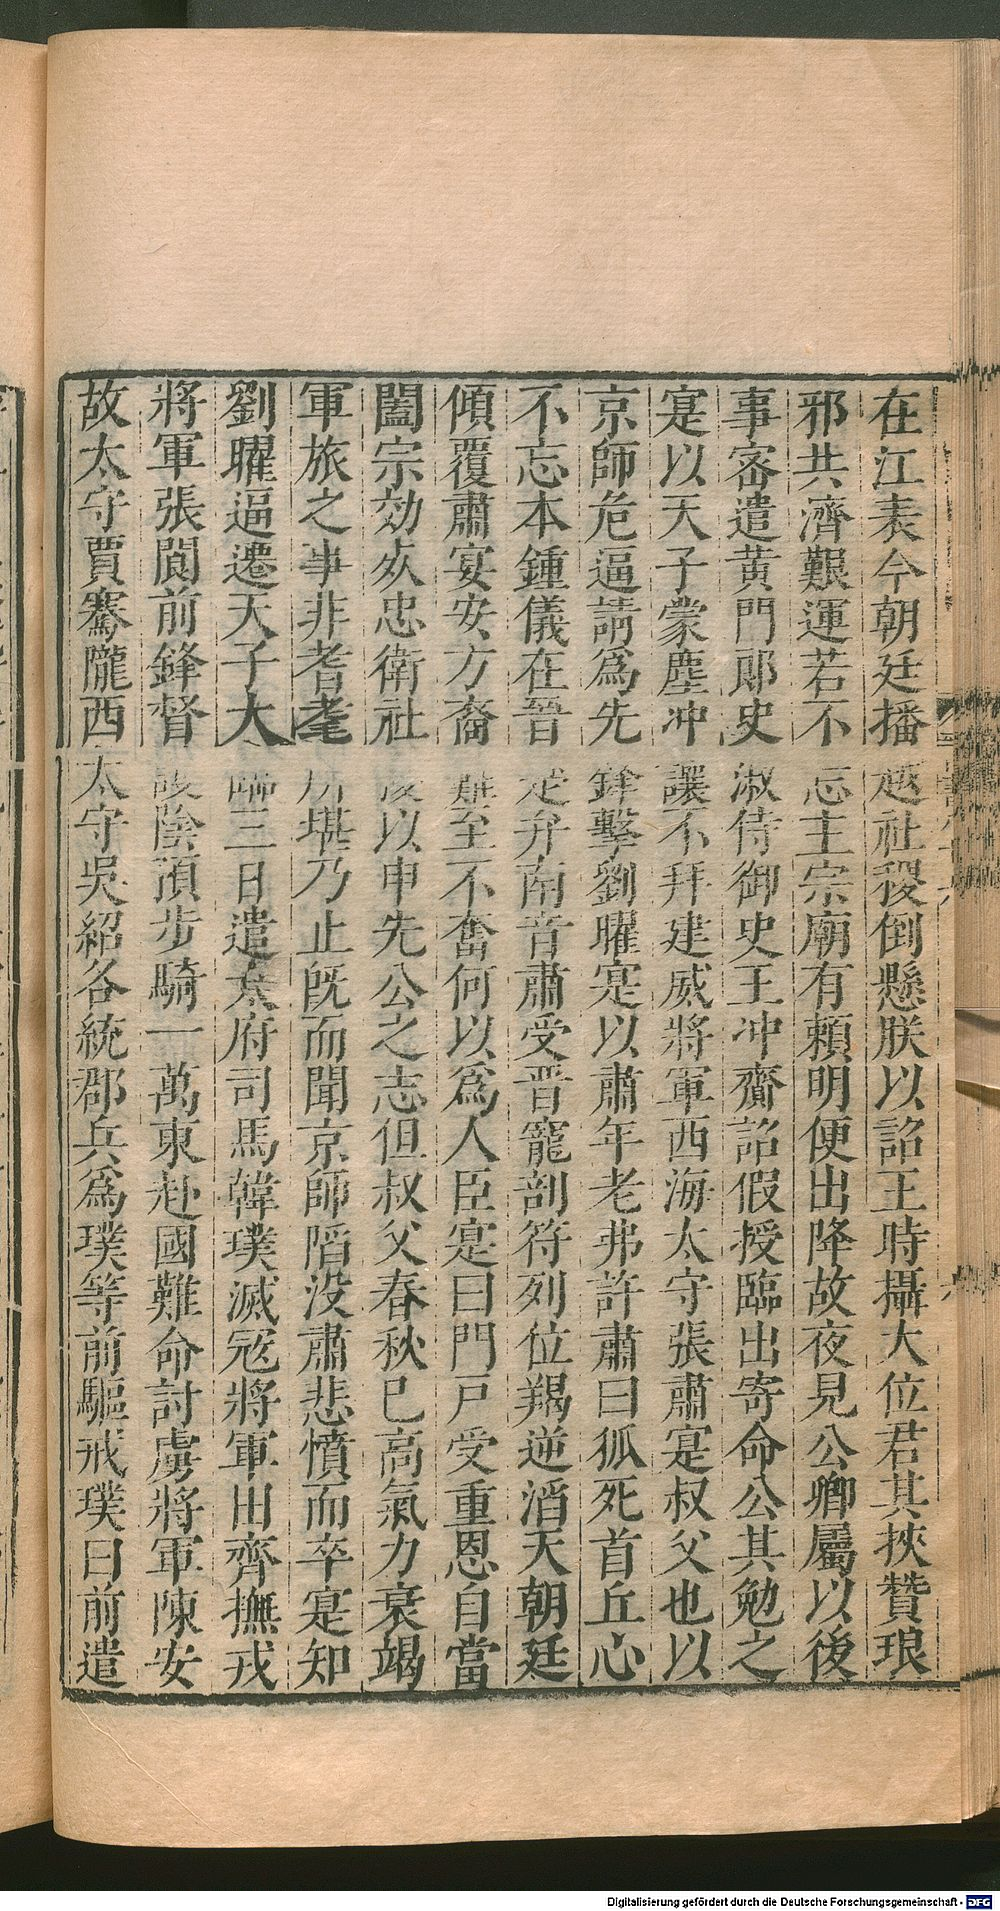 在江表今朝廷播越社稷倒懸朕以詔王時攝大位君其挾贊琅
邪共濟艱運若不忘主宗廟有賴明便出降故夜見公卿屬以後
事密遣黃門郎史淑侍御史王冲齎詔假授臨出寄命公其勉之
寔以天子蒙塵冲讓不拜建威將軍西海太守張肅寔叔父也以
京師危逼請爲先鋒擊劉曜寔以肅年老弗許肅曰狐死首丘心
不忘本鍾儀在晉楚弁南音肅受晉寵剖符列位羯逆滔天朝廷
傾覆肅宴安方裔難至不奮何以爲人臣寔曰門戸受重恩自當
闔宗効死忠衛社稷以申先公之志但叔父春秋已高氣力衰竭
軍旅之事非耆耄所堪乃止旣而聞京師陷没肅悲憤而卒寔知
劉曜逼遷天子大臨三日遣太府司馬韓璞滅寇將軍田齊撫戎
將軍張閬前鋒督護陰預步騎一萬東赴國難命討虜將軍陳安
故太守賈騫隴西太守吳紹各統郡兵爲璞等前驅戒璞曰前遣
Digitalisierung gefördert durch die Deutsche Forschungsgemeinschaft - DFG